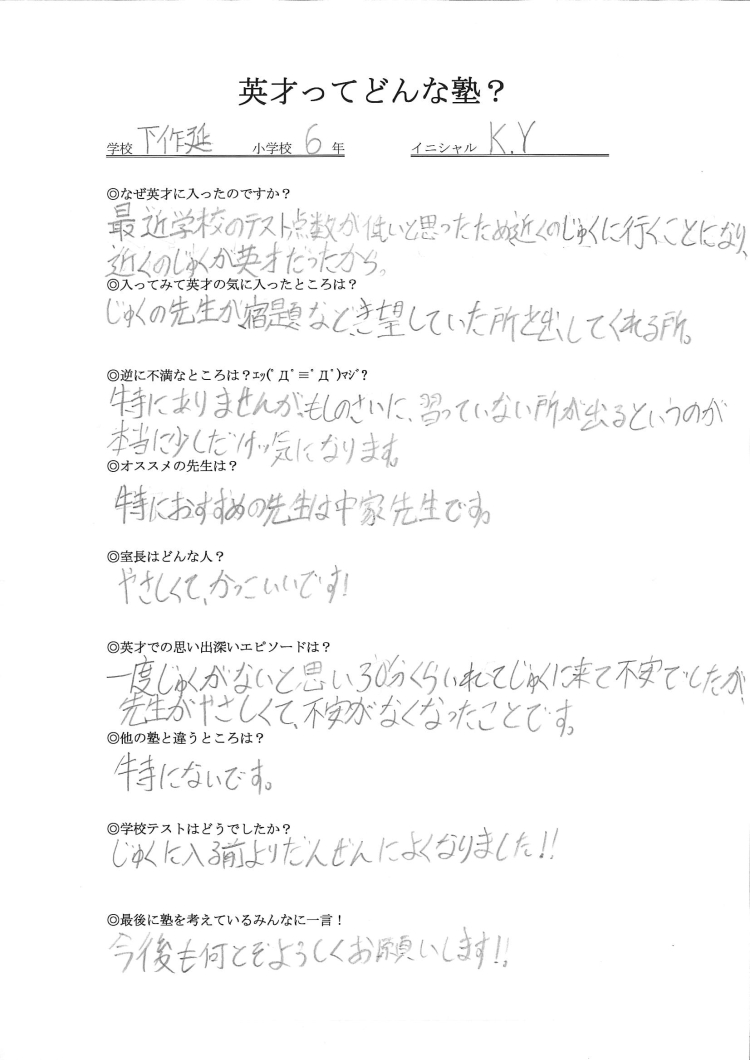 英才ってどんな塾？
学校 下作延 小学校 6 年 イニシャル K.Y
◎なぜ英才に入ったのですか？
最近学校のテスト点数が低いと思ったため近くのじゅくに行くことになり、
近くのじゅくが英才だったから。
◎入ってみて英才の気に入ったところは？
じゅくの先生が、宿題など、き望していた所を出してくれる所。
◎逆に不満なところは？ｴｯ(ﾟДﾟ≡ﾟДﾟ)ﾏｼﾞ？
特にありませんが、もしのさいに、習っていない所が出るというのが
本当に少しだけッ気になります。
◎オススメの先生は？
特におすすめの先生は中家先生です。
◎室長はどんな人？
やさしくて、かっこいいです！
◎英才での思い出深いエピソードは？
一度じゅくがないと思い30分くらいれてじゅくに来て不安でしたが、
先生がやさしくて、不安がなくなったことです。
◎他の塾と違うところは？
特にないです。
◎学校テストはどうでしたか？
じゅくに入る前よりだんぜんによくなりました！！
◎最後に塾を考えているみんなに一言！
今後も何とぞよろしくお願いします！！。